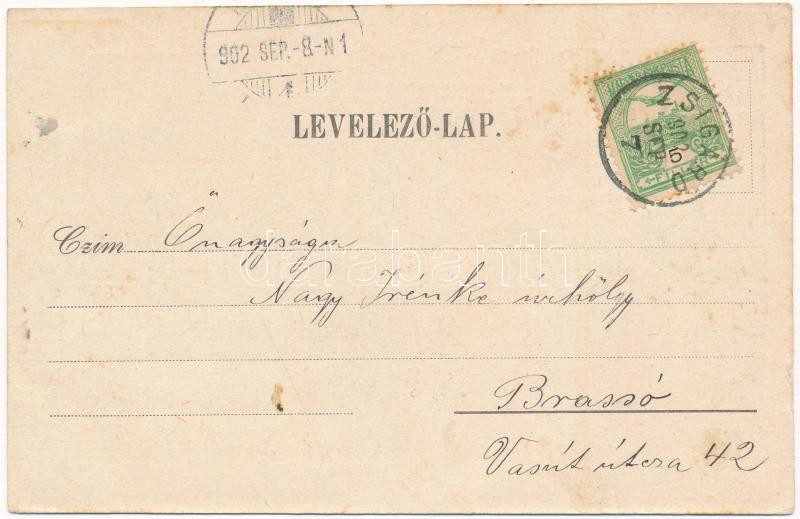 902 SEP.-8.-N1
LEVELEZŐ-LAP.
ZSIGARD
902 SEP 7
5
FILLÉR
Czim Őnagysága
Nagy Irénke úrhölgy
Brassó
Vasút útcza 42
darabanth